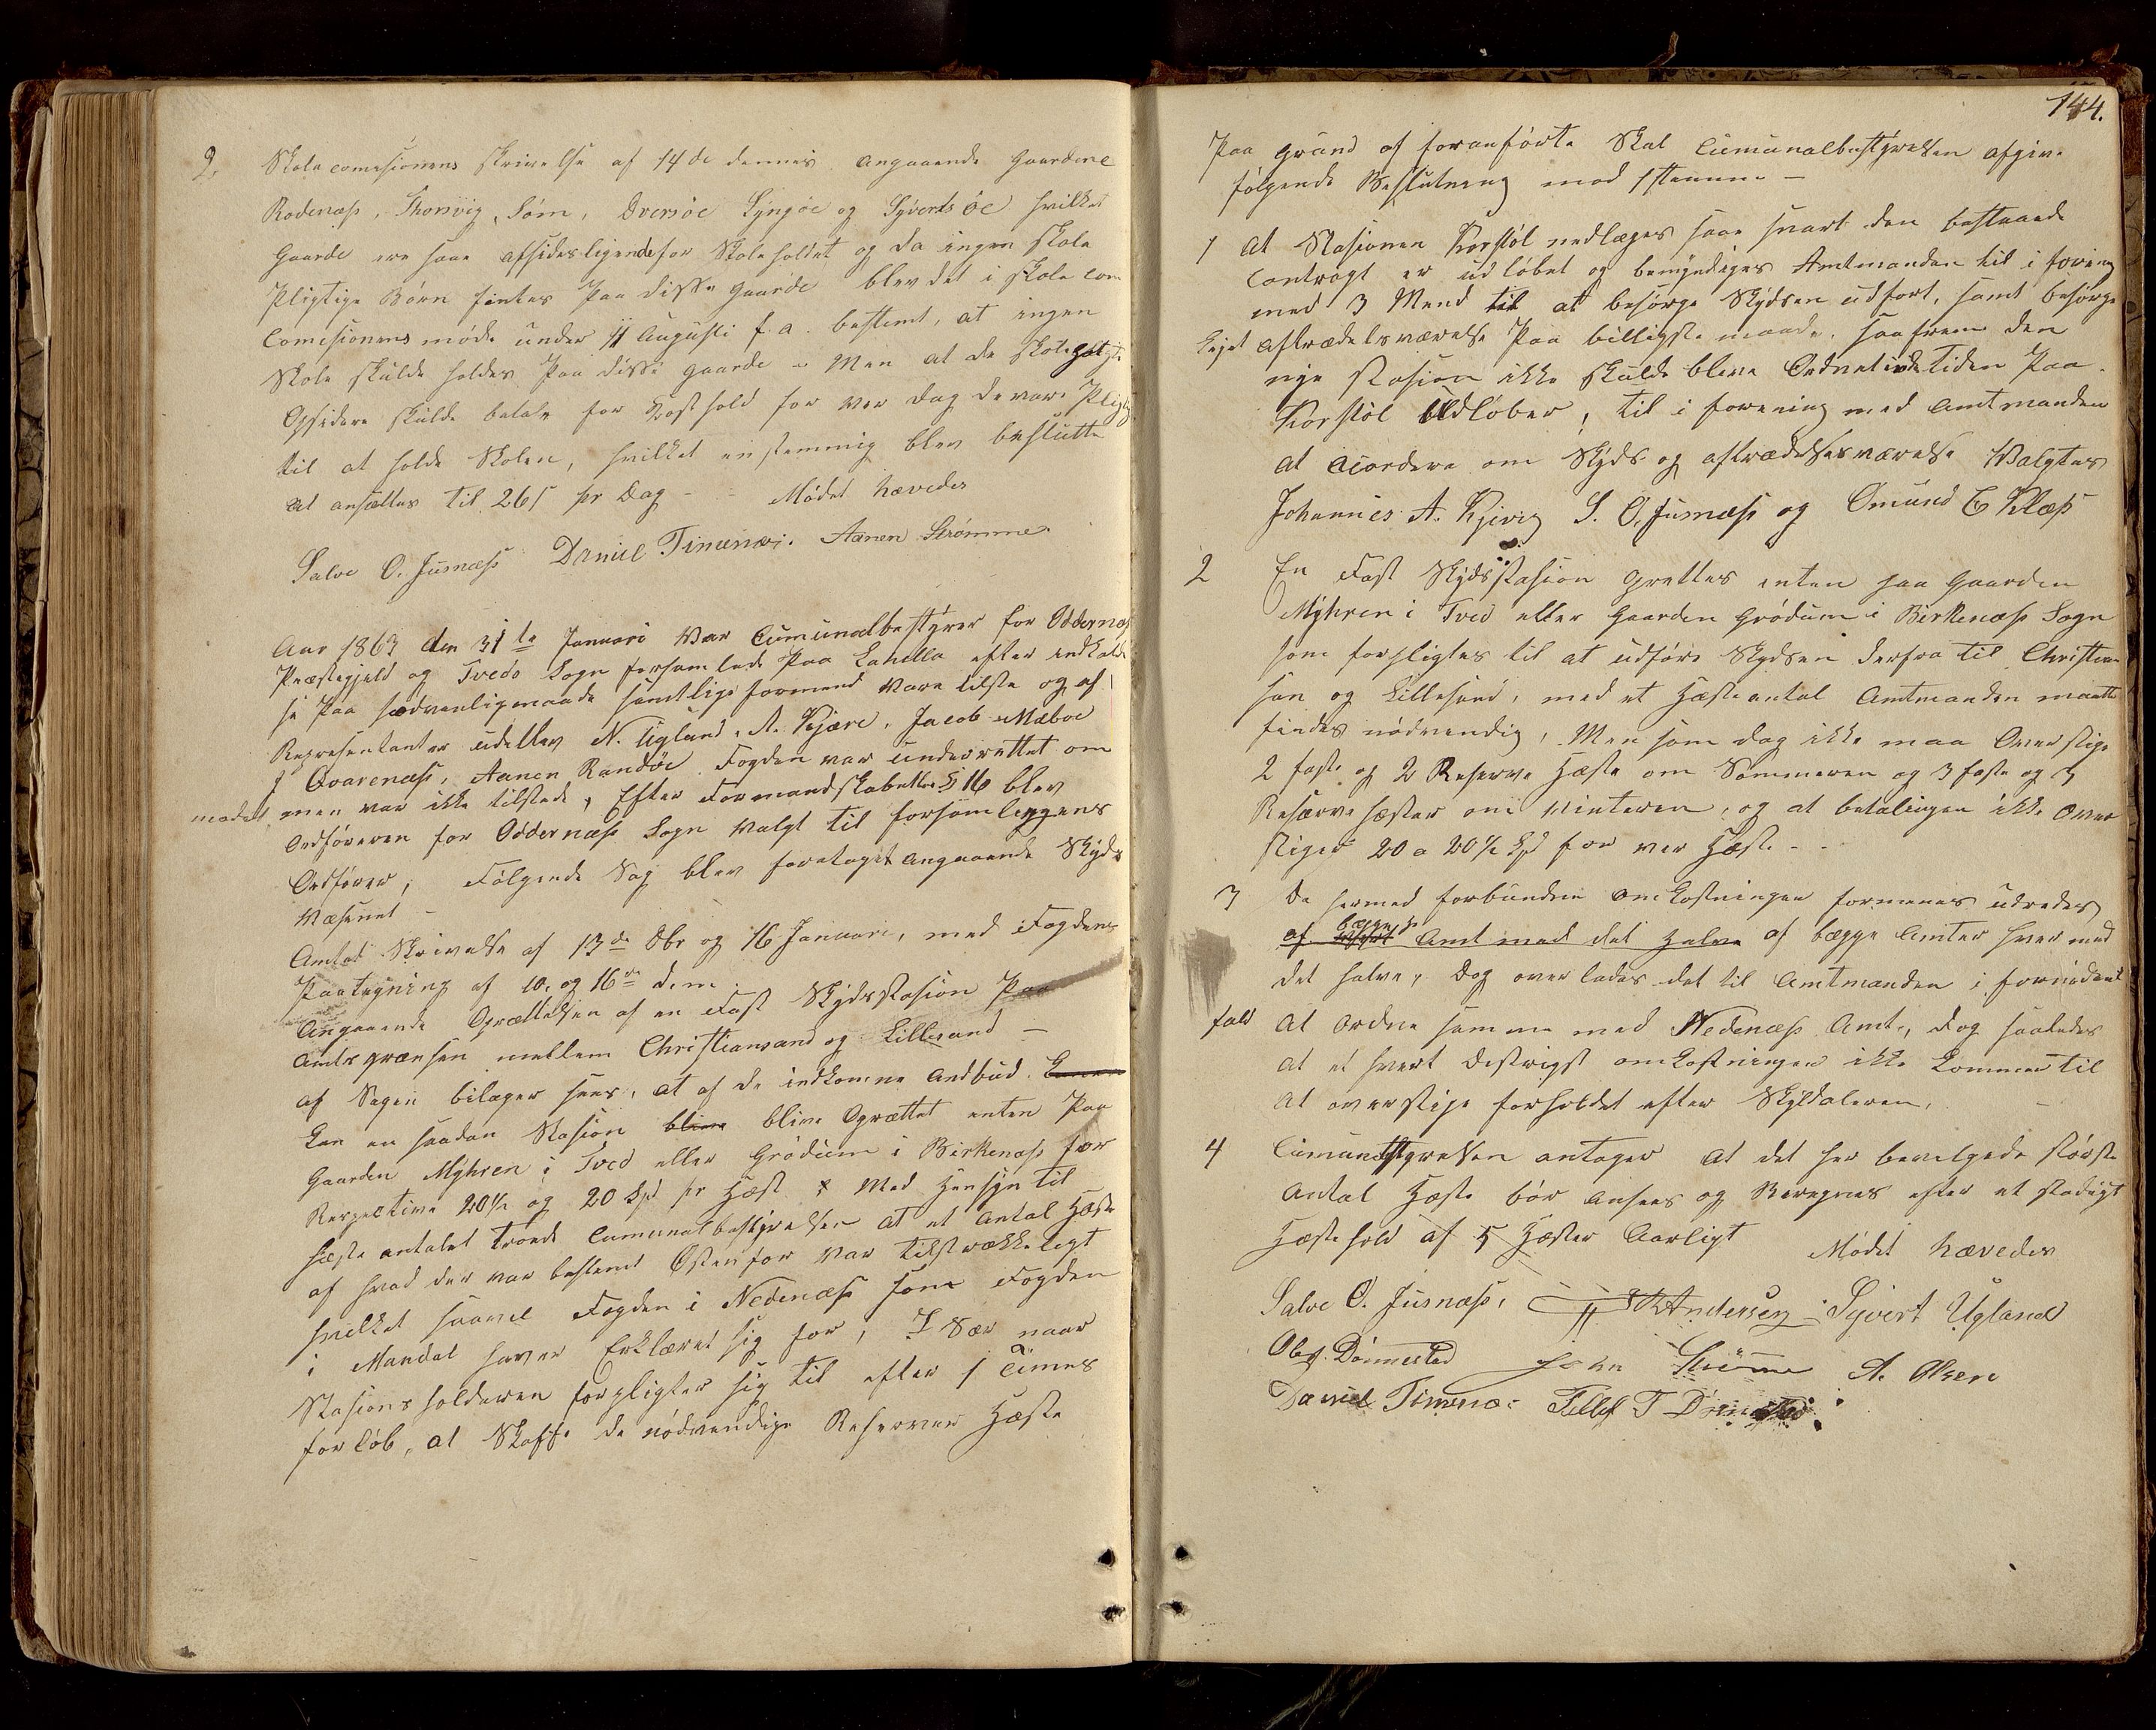 2. Skolecomesionens skrivelse af 14de dennes angaaende Gaardene
Rodenæs, Thorsvig, Søm, Dversöe Lyngöe og Syvertsöe hvilket
Gaarde ere saae afsidesligende for Skoleholdet og da ingen skole
Pligtige Börn fintes paa disse Gaarde blev det i skole com
Comesionens möde under 11 Augusti f.a. bestemt, at ingen
Skole skulde holdes paa disse gaarde - Men at de
Opsidere skulde betale for Kosthold for ver Dag de vare Pligtig
til at holde Skolen, hvilket enstemmig blev besluttet
at ansættes til 26 s pr Dag - - Mödet hævedes
Salve O. Jusnæss Daniel Timenæs. Aanen Strömme.
Aar 1863 den 31te Januari Var Cumunalbestyrer for Oddernæs
Præstegjeld og Tveds Sogn forsamlede paa Lahella efter indkaldel
se paa sædvanligmaade samtlige formend vare tilste og af
Representanter udeblev N. Ugland, A. Kjære, Jacob Mæboe
J Qvarenæs, Aanen Randöe Fogden var underrettet om
mödet, men var ikke tilstede, Efter Formandskabetts § 16 blev
Ordföreren for Oddernæs Sogn valgt til forsamlingens
Ordförer, Fölgende Sag blev foretaget angaaende Skyds
Væsenet -
Amtets Skrivelse af 13de Dbr og 16 Januari, med Fogdens
Paategning af 10. og 16de d.m.
Angaaende Oprættelsen af en Fast Skydsstasion paa
Amtsgrænsen mellem Christiansand og Lillesand -
af Sagen bilager sees, at af de indkomne Andbud.
kan en saadan Stasion blive blive Oprættet enten paa
Gaarden Myhren i Tved eller Grödum i Birkenæs for
Respective 20½ og 20 Spd pr Hest, Med Hensyn til
Heste antalet troede Cumunalbestyrelsen at et Antal Heste
af hvad der var bestemt Østenfor var tilstrækkeligt
hvilket saavel Fogden i Nedenæs som Fogden
i Mandal haver Erklæret sig for, I Vær naar
Stasionsholderen forpligter sig til efter 1 Times
forlöb, at Skaffe de nödvendige Reserver Heste
144.
Paa grund af foranförte Skal Cumunalbestyrelsen afgive
fölgende Beslutning mod 1 stemme -
1 at Stasionen Korstöl nedlægges saae snart den bestaaede
Contragt er udlöbet og bemyndiges Amtmanden til i forening
med 3 Mend til at besörge Skydsen udfört, samt besörge
Leiet aftrædelsværelse paa billigste maade, saafrem den
nye stasion ikke skulde blive Ordnet inde tiden paa
Korstöl Udlöber, til i forening med Amtmanden
at Acordere om Skyds og aftrædelsesværelse Valgtes
Johannes A. Kjevig S. O. Jusnæss og Omund E Klæp
2 En Fast Skydsstasion oprettes enten paa Gaarden
Myhren i Tved eller Gaarden Grödum i Birkenæs Sogn
som forpligtes til at udföre Skydsen derfra til Christian
san og Lillesand, med et Hesteantal Amtmanden maatte
findes nödvendig, Men som dog ikke maa Overstige
2 faste og 2 Reserve Heste om Sommeren og 3 faste og 3
Reserve heste om Vinteren, og at betalingen ikke Over
stiger 20 a 20½ Spd for ver Heste - -
3 De hermed forbundne omkostninger formenes udredes
af begge Amt med det halve af begge Amter hver med
det halve, Dog overlades det til Amtmanden i fornödent
fald at Ordne samme med Nedenæs Amt, dog saaledes
at et hvert Destrigst omkostninger ikke kommer til
at overstige forholdet efter Skyldaleren.
4 Cumunestyrelsen antager at det her bevilgede störste
Antal Heste bör Ansees og Beregnes efter et stadigt
Hestehold af 5 Hester Aarligt Mödet hævedes
Salve O. Jusnæss, Andersen Syvert Ugland
Obg. Dönnestad John Strömme A. Olsen
Daniel Timenæs Tellef T Dönnestad